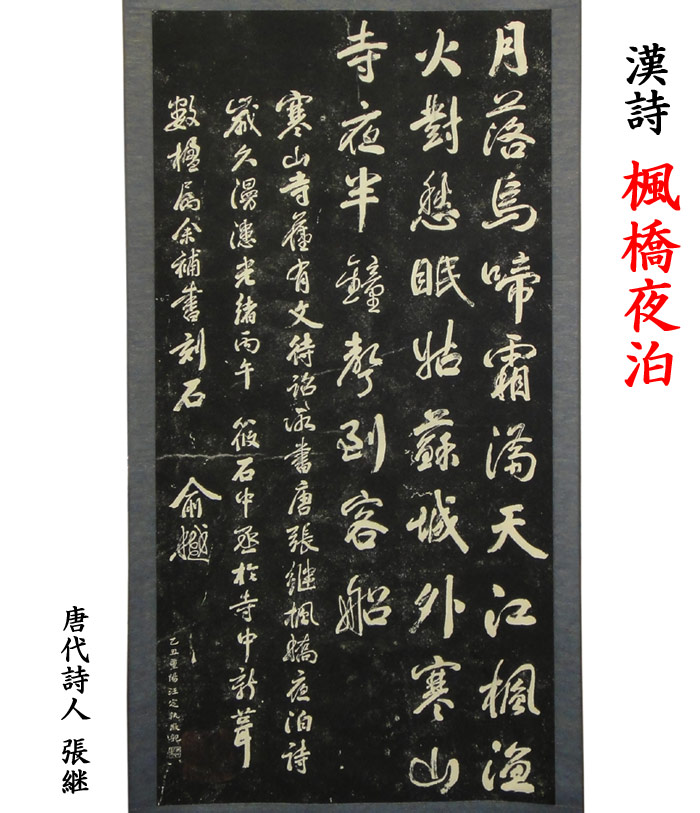 漢詩 楓橋夜泊
月落烏啼霜滿天江楓漁
火對愁眠姑蘇城外寒山
寺夜半鐘聲到客船
寒山寺舊有文待詔所書唐張繼楓橋夜泊詩
歲久漫漶光緒丙午 筱石中丞於寺中新葺
數楹屬余補書刻石 俞樾
乙丑重陽汪定執
唐代詩人 張継